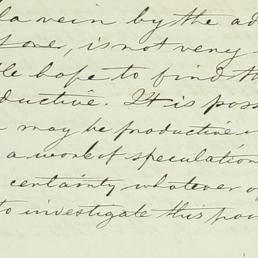 la vein by the ad
t one, is not very
le hope to find th
ductive. It is poss
may be productive
a work of speculation
certainty whatever o
to investigate this poin